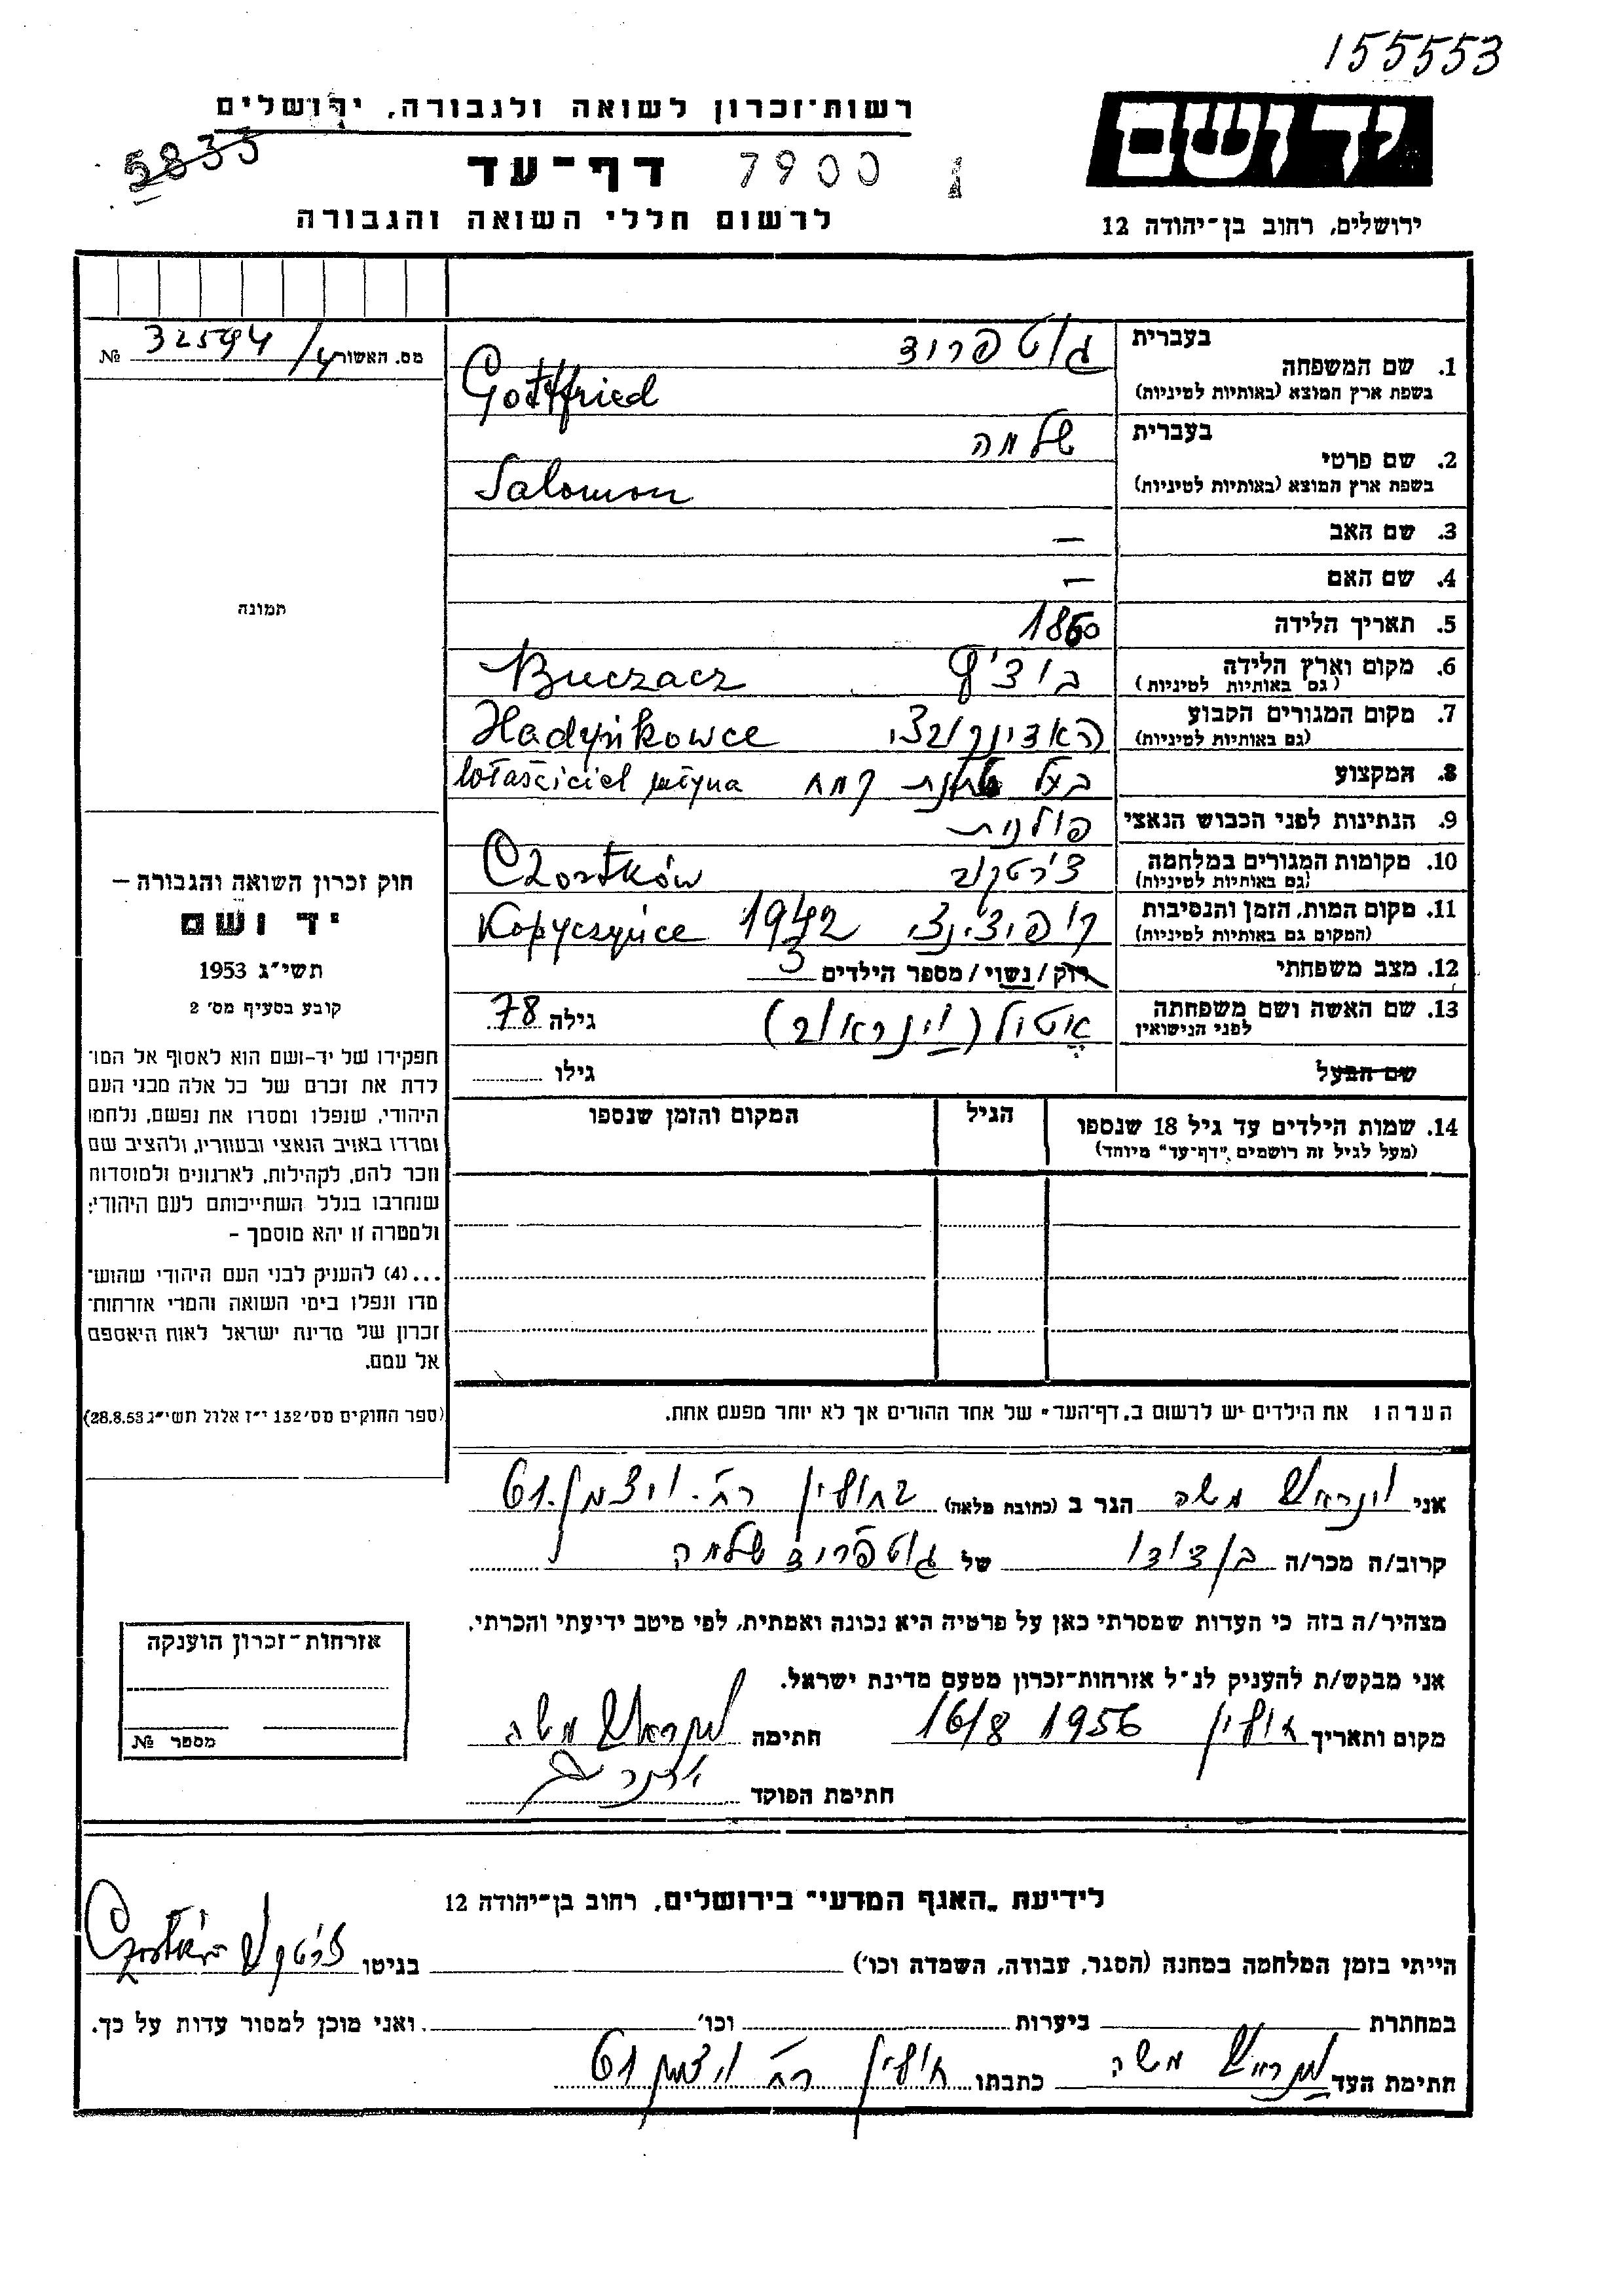 155553
יד ושם
ירושלים, רחוב בן־יהודה 12
רשות־זכרון לשואה ולגבורה, ירושלים
5835
דף־עד 7900
לרשום חללי השואה והגבורה
מס. האשור 32594/4 №
תמונה
בעברית גוטפריד
1. שם המשפחה
בשפת ארץ המוצא (באותיות לטיניות) Gottfried
בעברית שלמה
2. שם פרטי
בשפת ארץ המוצא (באותיות לטיניות) Salomon
3. שם האב —
4. שם האם —
5. תאריך הלידה 1860
6. מקום וארץ הלידה בוצ'ץ Buczacz
(גם באותיות לטיניות)
7. מקום המגורים הקבוע Hadyńkowce
(גם באותיות לטיניות)
8. המקצוע בעל טחנת קמח właściciel młyna
9. הנתינות לפני הכבוש הנאצי פולנית
10. מקומות המגורים במלחמה צ'ורטקוב Czortków
(גם באותיות לטיניות)
11. מקום המות, הזמן והנסיבות קופיצ'ינצי 1942 Kopyczyńce
(המקום גם באותיות לטיניות)
12. מצב משפחתי רוק / נשוי / מספר הילדים 3
13. שם האשה ושם משפחתה גילה 78
לפני הנישואין
שם הבעל גילו
14. שמות הילדים עד גיל 18 שנספו הגיל המקום והזמן שנספו
(מעל לגיל זה רושמים „דף־עד" מיוחד)
הערה: את הילדים יש לרשום ב„דף־העד" של אחד ההורים אך לא יותר מפעם אחת.
חוק זכרון השואה והגבורה —
יד ושם
תשי״ג 1953
קובע בסעיף מס׳ 2
תפקידו של יד-ושם הוא לאסוף אל המו־
לדת את זכרם של כל אלה מבני העם
היהודי, שנפלו ומסרו את נפשם, נלחמו
ומרדו באויב הנאצי ובעוזריו, ולהציב שם
וזכר להם, לקהילות, לארגונים ולמוסדות
שנחרבו בגלל השתייכותם לעם היהודי;
ולמטרה זו יהא מוסמך –
...(4) להעניק לבני העם היהודי שהוש־
מדו ונפלו בימי השואה והמרי אזרחות־
זכרון של מדינת ישראל לאות היאספם
אל עמם.
(ספר החוקים מס׳ 132 י״ז אלול תשי״ג 28.8.53)
אני משה הגר ב (כתובת מלאה) רח. ויצמן 61
קרוב/ה מכר/ה בן דודו של גוטפריד שלמה
מצהיר/ה בזה כי העדות שמסרתי כאן על פרטיה היא נכונה ואמתית, לפי מיטב ידיעתי והכרתי.
אני מבקש/ת להעניק לנ״ל אזרחות־זכרון מטעם מדינת ישראל.
מקום ותאריך חולון 16/8 1956 חתימה משה
חתימת הפוקד
אזרחות־זכרון הוענקה
מספר №
לידיעת „האגף המדעי" בירושלים, רחוב בן־יהודה 12
הייתי בזמן המלחמה במחנה (הסגר, עבודה, השמדה וכו׳) בגיטו צ'ורטקוב Czortków
במחתרת ביערות וכו׳ ואני מוכן למסור עדות על כך.
חתימת העד משה כתבתו חולון רח' ויצמן 61